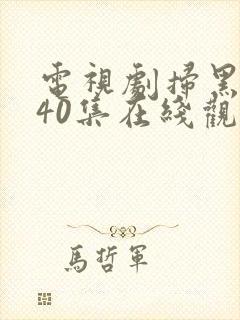 電視劇掃黑
40集在綫觀
馬哲軍